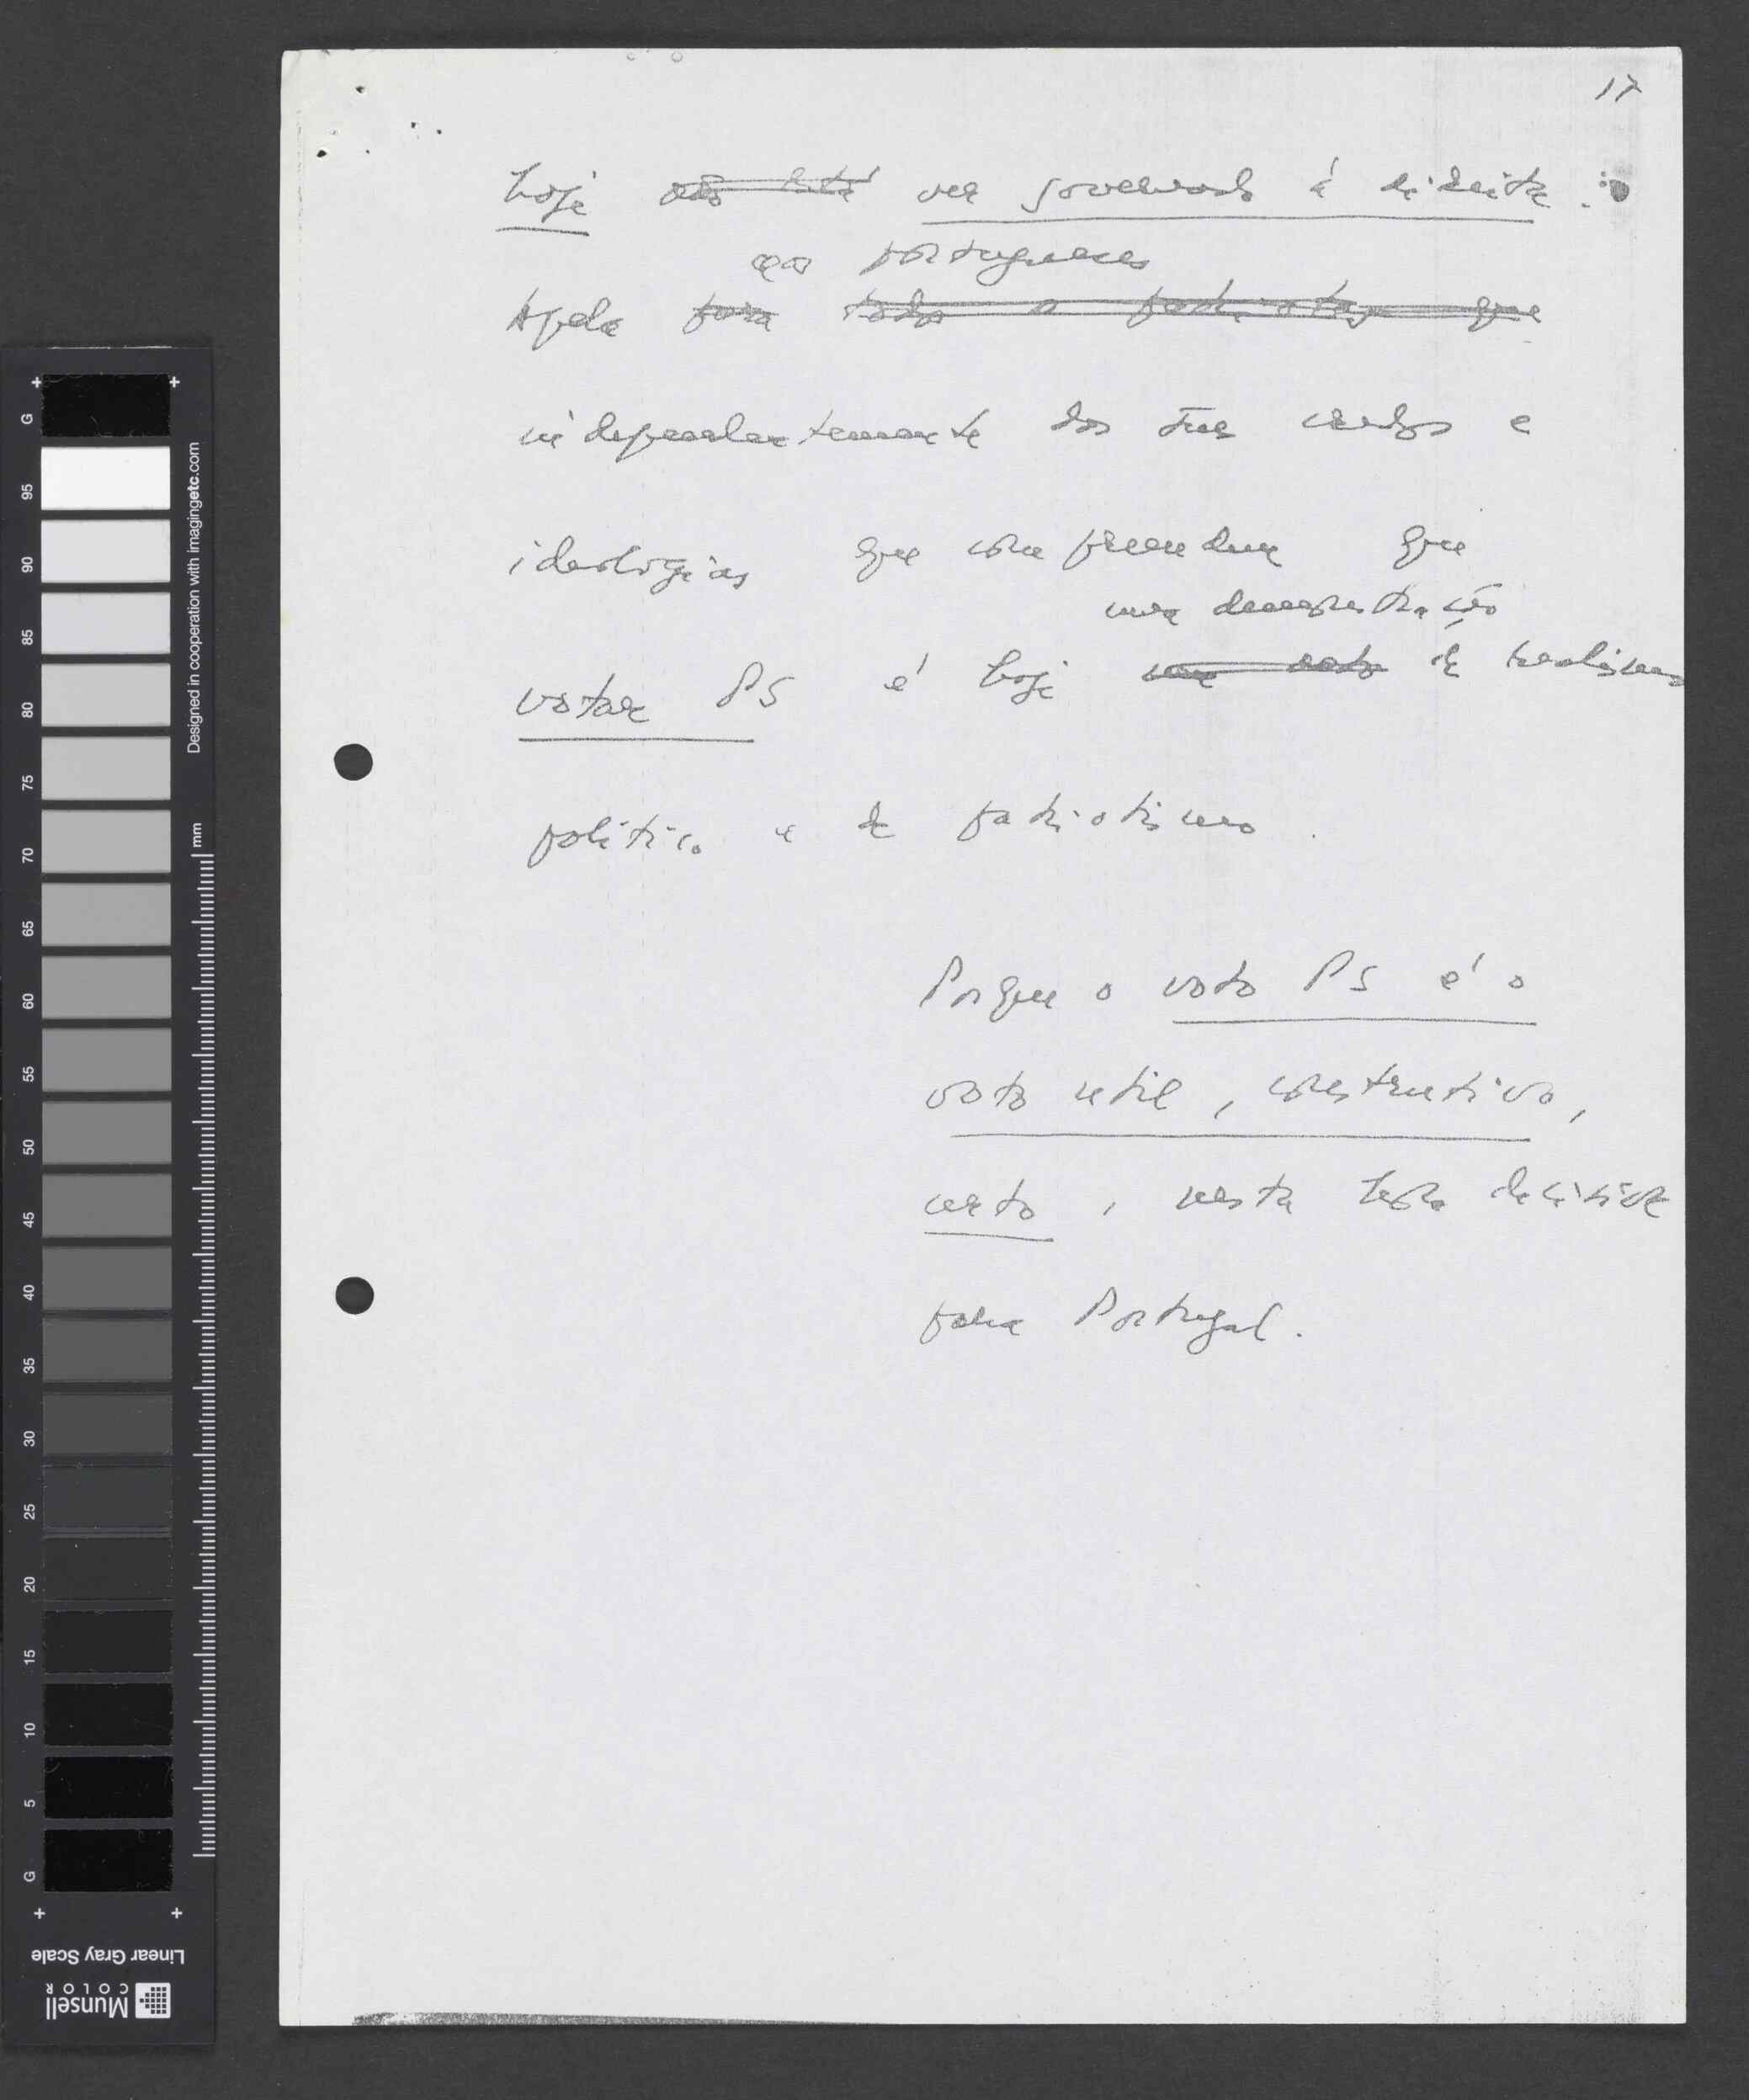 17
hoje não está um governo à direita.
aos portugueses
Apelo para todos os patriotas que
independentemente dos seus credos e
ideologias que compreendam que
uma demonstração
votar PS é hoje um acto de realismo
político e de patriotismo.
Porque o voto PS é o
voto util, construtivo,
certo, nesta hora decisiva
para Portugal.
G
95
90
85
80
75
70
65
60
55
50
45
40
35
30
25
20
15
10
5
G
Designed in cooperation with imagingetc.com
mm
Linear Gray Scale
Munsell
COLOR